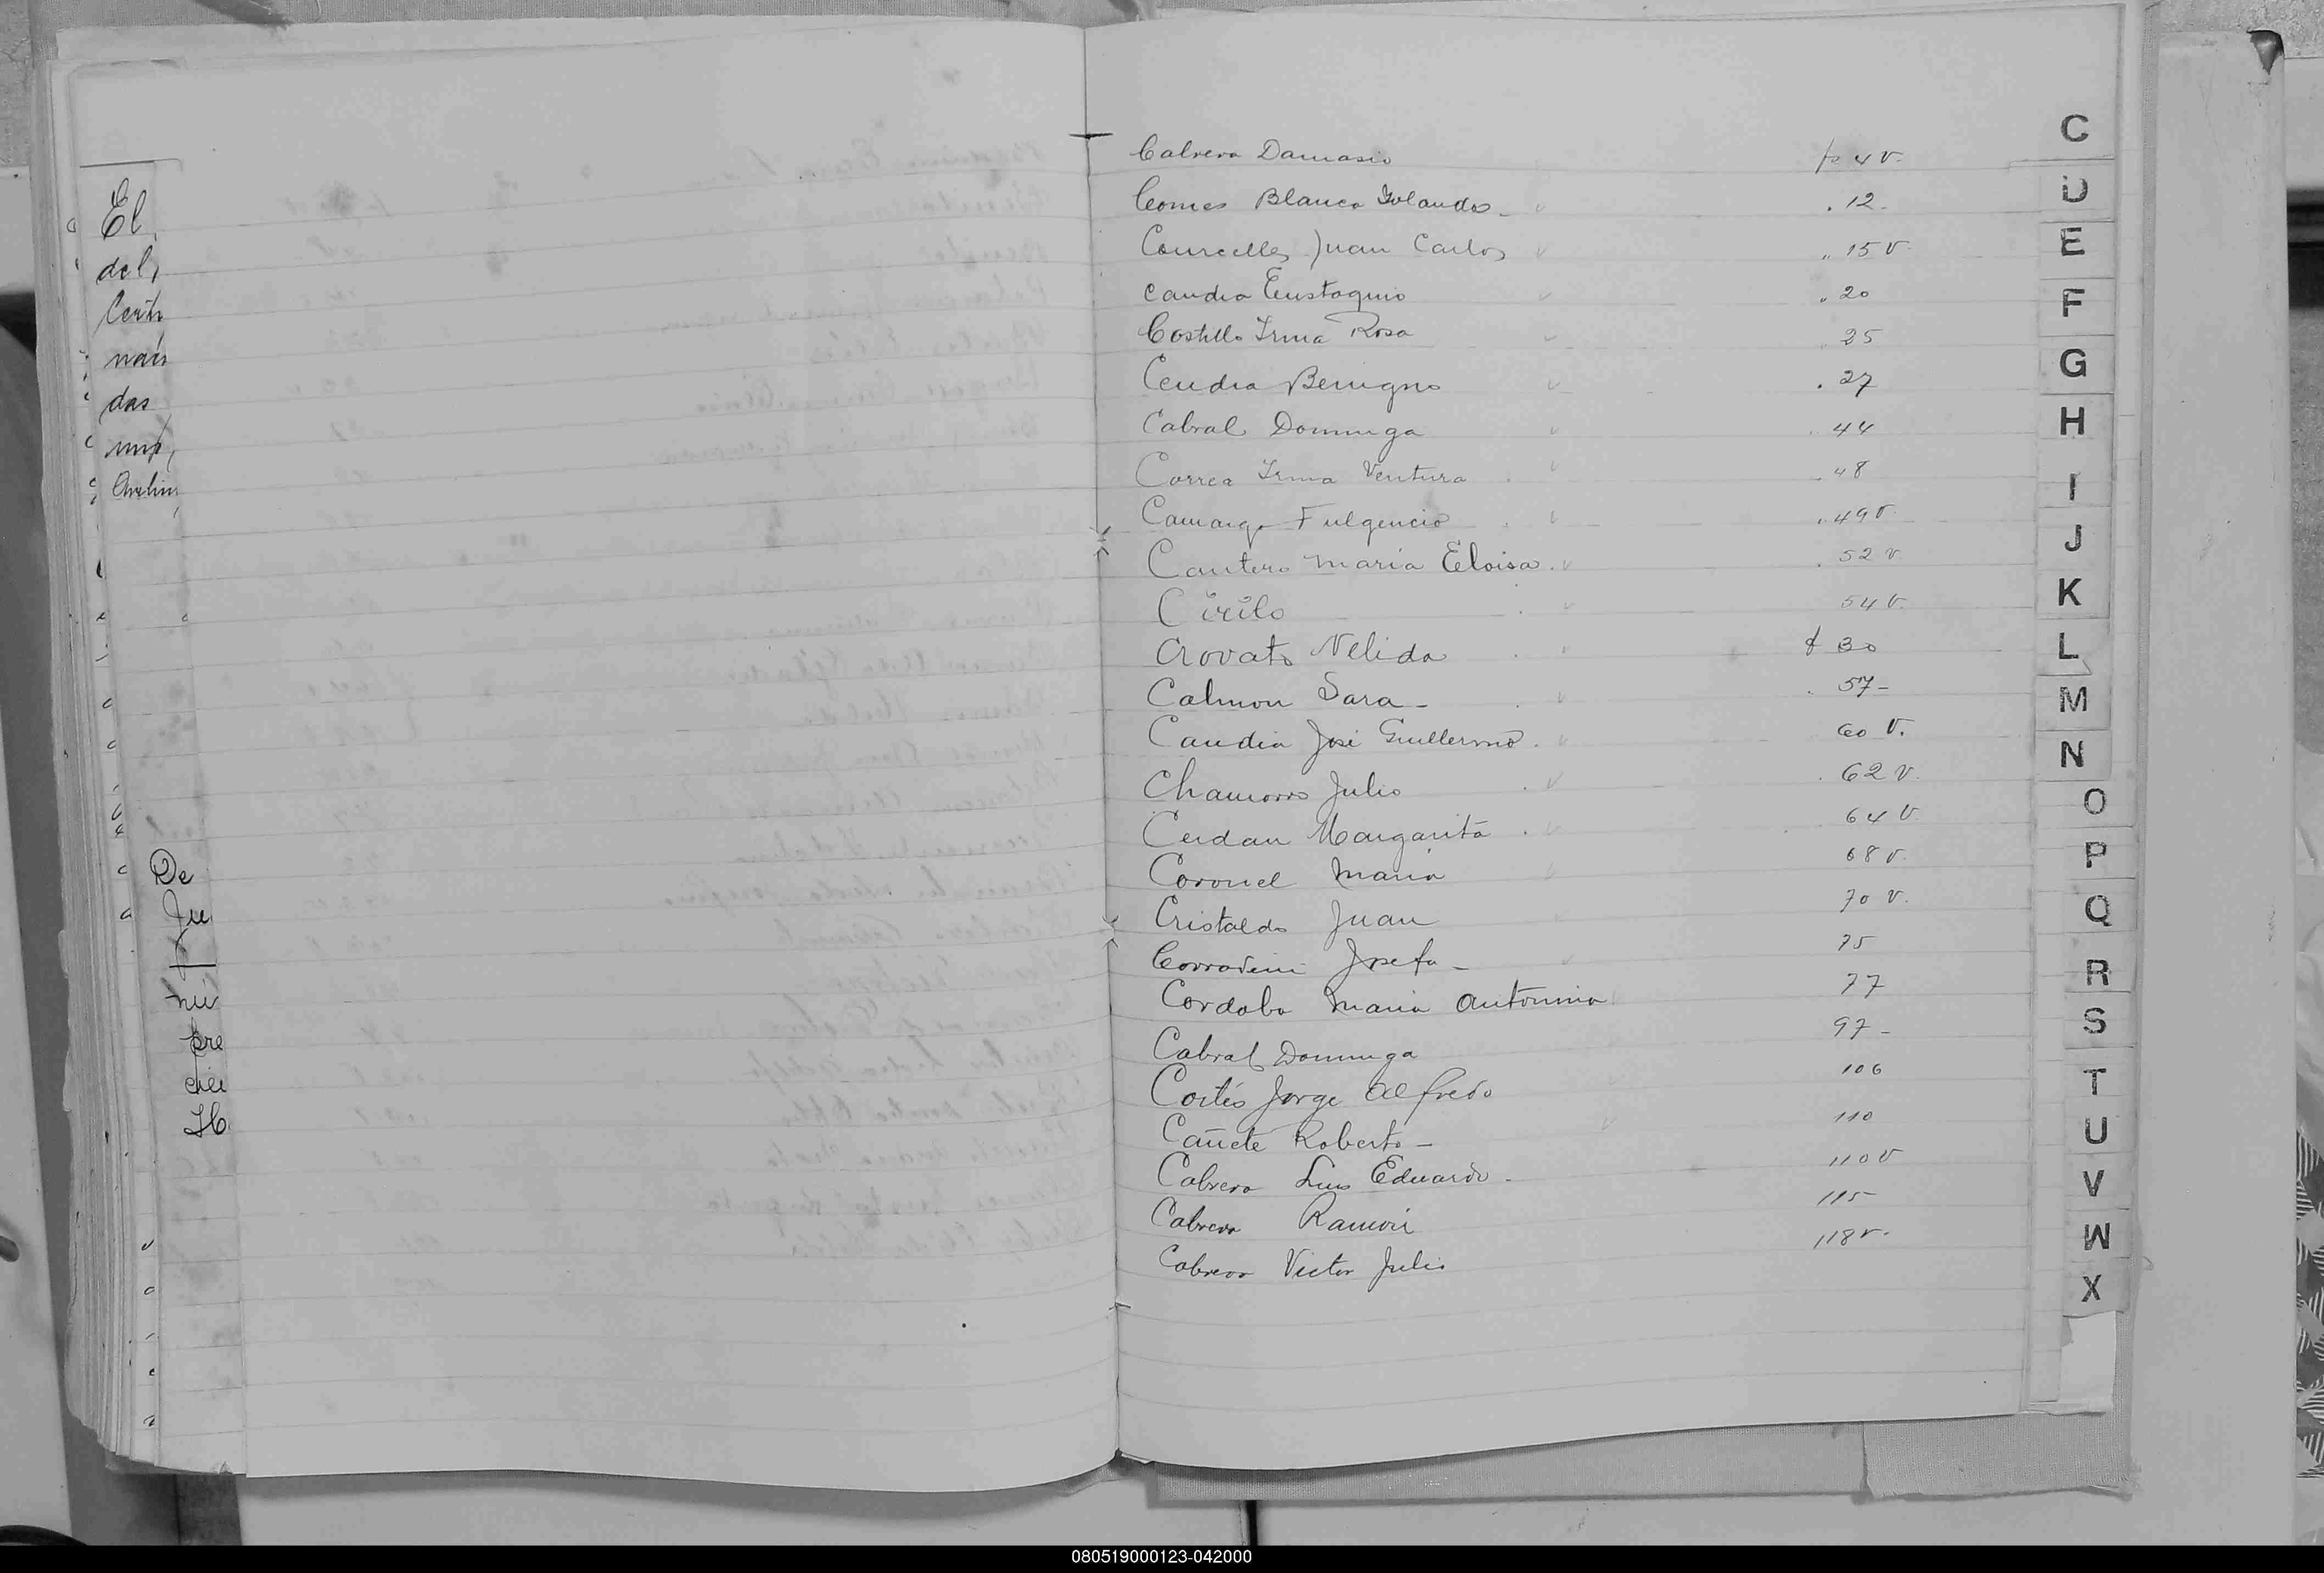 El
del
das
De
Ju
pre
Cabrera Damasio fo 4 v.
Comes Blanca Yolanda - . 12 -
Courcelles Juan Carlos " 15 v.
Candia Eustaquio " 20
Costillo Irma Rosa " 25
Cendra Benigno . 27
Cabral Dominga . 44
Correa Irma Ventura . 48
Camargo Fulgencio " 49 v.
Cantero Maria Eloisa . 52 v
Cirilo 54 v.
Crovato Nelida f 30
Calmon Sara - . 57 -
Candia José Guillermo . 60 v.
Chamorro Julio . 62 v.
Cerdan Margarita . 64 v.
Coronel Maria 68 v.
Cristaldo Juan 70 v.
Corradini Josefa - 75
Cordoba Maria Antonina 77
Cabral Dominga 97 -
Cortés Jorge Alfredo 106
Cañete Roberto - 110
Cabrera Luis Eduardo - 110 v
Cabrera Ramón 115
Cabrera Victor Julio 118 v.
C
D
E
F
G
H
I
J
K
L
M
N
O
P
Q
R
S
T
U
V
W
X
080519000123-042000